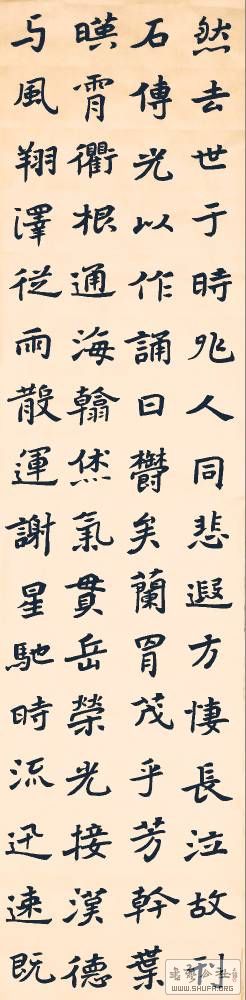 然去世于時兆人同悲遐方悽長泣故刊
石傳光以作誦曰欝矣蘭胄茂乎芳幹葉
暎霄衢根通海翰烋氣貫岳榮光接漢德
与風翔澤從雨散運謝星馳時流迅速既
WWW.SHUFA.ORG